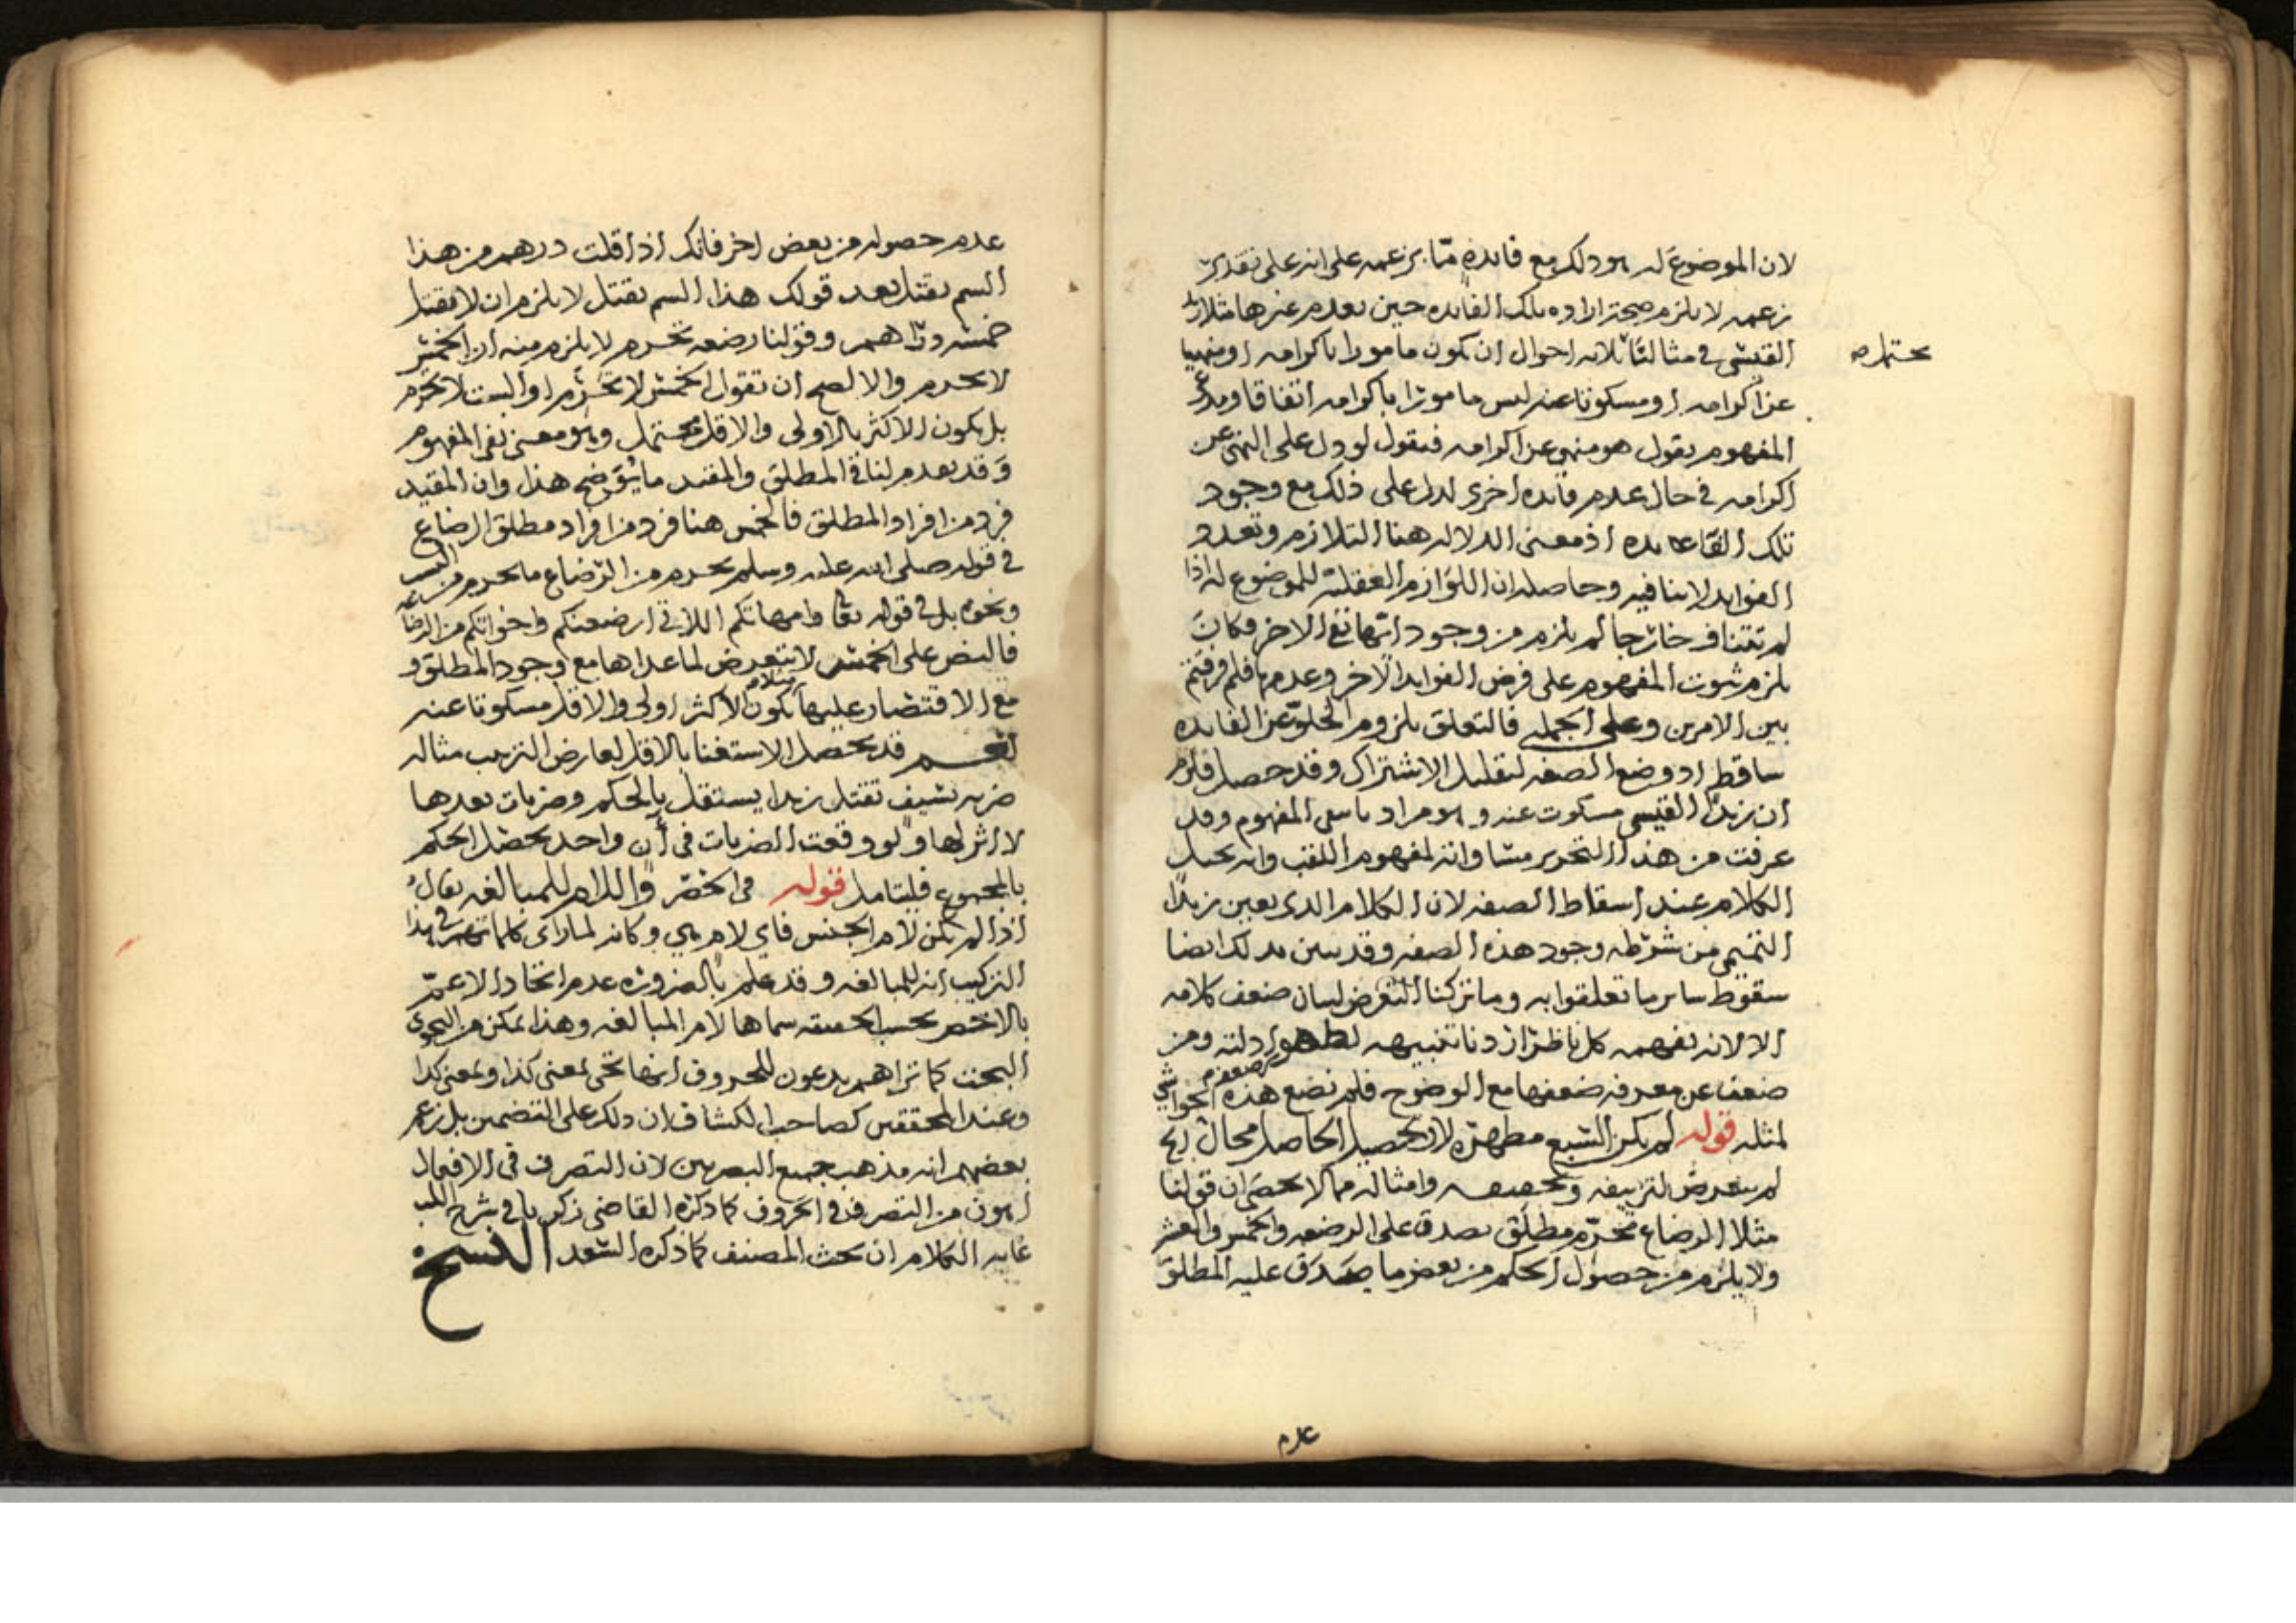 لان الموضوع له هو ذلك مع فائدة ما بزعمه على انه على تقدير
زعمه لا يلزم صحة ارادة تلك الفائدة حين تعدم غيرها مثلا زيد
القيسي في مثالنا ثلاثة احوال ان يكون مامورا باكرامه او منهيا
يحتمل صح
عن اكرامه او مسكوتا عنه ليس مامورا باكرامه اتفاقا ومدعي
المفهوم يقول هو منهي عن اكرامه فنقول لو دل على النهي عن
اكرامه في حال عدم فائدة اخرى لدل على ذلك مع وجود
تلك الفائدة اذ معنى الدلالة هنا التلازم وتعدد
الفوايد لا ينافيه وحاصله ان اللوازم العقلية للموضوع له اذا
لم تتناف خارجا لم يلزم من وجود ايها نفي الاخر فكان
يلزم ثبوت المفهوم على فرض الفوايد الاخر وعدمها فلم فرقتم
بين الامرين وعلى الجملة فالتعلق بلزوم الخلو عن الفائدة
ساقط اذ وضع الصفة لتقليل الاشتراك وقد حصل فلزم
ان زيدا القيسي مسكوت عنه وهو مراد نافي المفهوم وقد
عرفت من هذا التحرير مساواته لمفهوم اللقب وانه يختل
الكلام عند اسقاط الصفة لان الكلام الذي يعين زيدا
التميمي من شرطه وجود هذه الصفة وقد تبين بذلك ايضا
سقوط ساير ما تعلقوا به وما تركنا التعرض لبيان ضعف كلامه
الا لانه يفهمه كل ناظر اردنا تنبيهه لظهور ادلته ومن
ضعف عن معرفة ضعفها مع الوضوح فلم نضع هذه الحواشي
لمثله قوله لم يكن السبع مطهرة لان تحصيل الحاصل محال الخ
لم يتعرض لتزييفه وتحقيقه وامثاله مما لا يحصى ان قولنا
مثلا الرضاع محرم مطلق يصدق على الرضعة والخمس والعشر
ولا يلزم من حصول الحكم من بعض ما يصدق عليه المطلق
عدم
عدم حصوله من بعض اخر فانك اذا قلت درهم من هذا
السم يقتل بعد قولك هذا السم يقتل لا يلزم ان لا يقتل
خمسة دراهم وقولنا رضعة تحرم لا يلزم منه ان الخمس
لا يحرم والا لصح ان تقول الخمس لا تحرم او الست لا تحرم
بل يكون الاكثر بالاولى والاقل محتمل وهو معنى نفي المفهوم
وقد تقدم لنا في المطلق والمقيد ما يوضح هذا وان المقيد
فرد من افراد المطلق فالخمس هنا فرد من افراد مطلق الرضاع
في قوله صلى الله عليه وسلم يحرم من الرضاع ما يحرم من النسب
ونحوه بل في قوله تعالى وامهاتكم اللاتي ارضعنكم واخواتكم من الرضاعة
فالنص على الخمس لا يتعرض لما عداها مع وجود المطلق و
مع الاقتصار عليها مثلا يكون الاكثر اولى والاقل مسكوتا عنه
نعم قد يحصل الاستغنا بالاقل لعارض الترتيب مثاله
ضربة بسيف تقتل زيدا يستقل بالحكم وضربات بعدها
لا اثر لها ولو وقعت الضربات في آن واحد يحصل الحكم
بالمجموع فليتامل قوله في الخضر واللام للمبالغة يقال
اذا لم تكن لام الجنس فاي لام هي وكانه لما راى كلماتهم في هذا
التركيب انه للمبالغة وقد علم بالضرورة عدم اتحاد الاعم
بالاخص بحسب الحقيقة سماها لام المبالغة وهذا يمكن من النحوي
البحت كما تراهم يدعون للحروف انها تجي لمعنى كذا ولمعنى كذا
وعند المحققين كصاحب الكشاف ان ذلك على التضمين بل زعم
بعضهم انه مذهب جميع البصريين لان التصرف في الافعال
اهون من التصرف في الحروف كما ذكره القاضي زكريا في شرح اللب
غاية الكلام ان بحث المصنف كما ذكره السعد النسخ